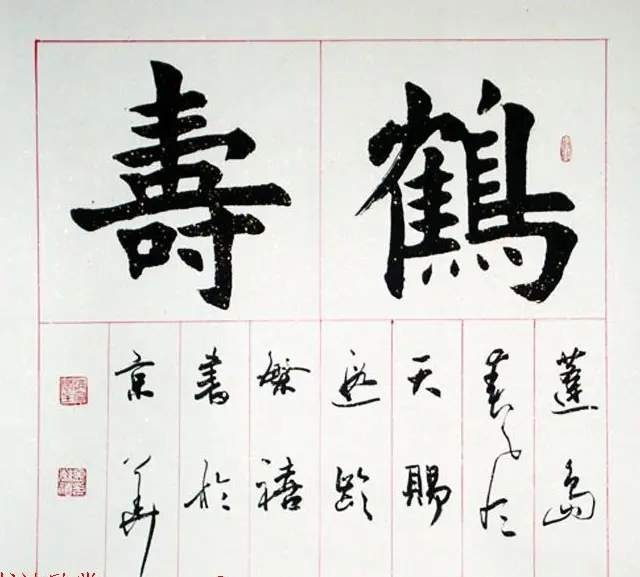 鶴壽
蓬島
春
天賜
遐齡
繁禧
書於
京華